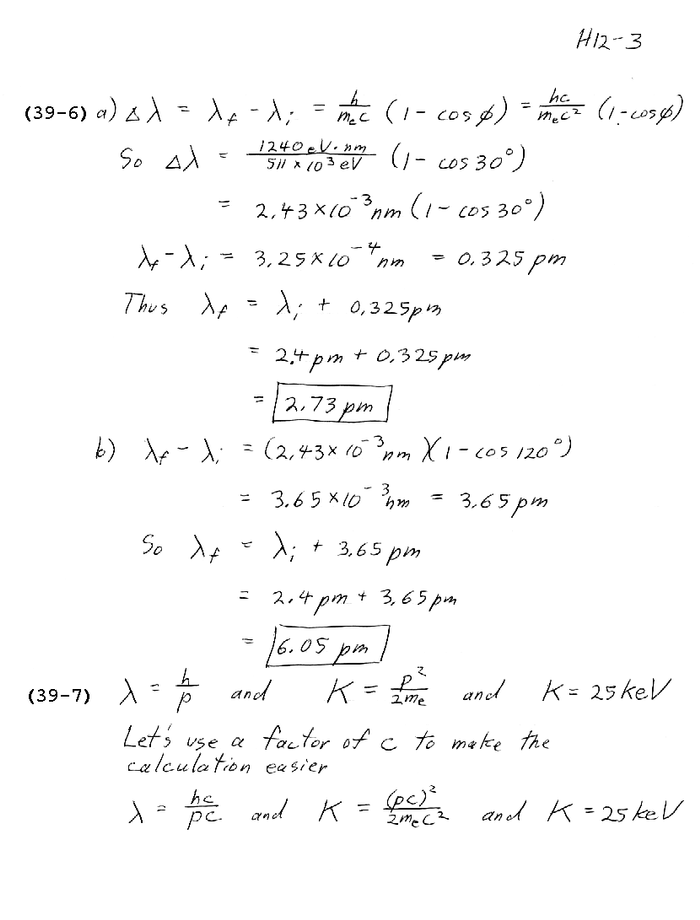 H12-3
(39-6) a) Δλ = λ_f - λ_i = h/(m_e c) (1 - cos ϕ) = hc/(m_e c²) (1 - cos ϕ)
So Δλ = 1240 eV·nm/(511 × 10³ eV) (1 - cos 30°)
= 2.43 × 10⁻³ nm (1 - cos 30°)
λ_f - λ_i = 3.25 × 10⁻⁴ nm = 0.325 pm
Thus λ_f = λ_i + 0.325 pm
= 2.4 pm + 0.325 pm
= 2.73 pm
b) λ_f - λ_i = (2.43 × 10⁻³ nm)(1 - cos 120°)
= 3.65 × 10⁻³ nm = 3.65 pm
So λ_f = λ_i + 3.65 pm
= 2.4 pm + 3.65 pm
= 6.05 pm
(39-7) λ = h/p and K = p²/(2m_e) and K = 25 keV
Let's use a factor of c to make the
calculation easier
λ = hc/pc and K = (pc)²/(2m_e c²) and K = 25 keV